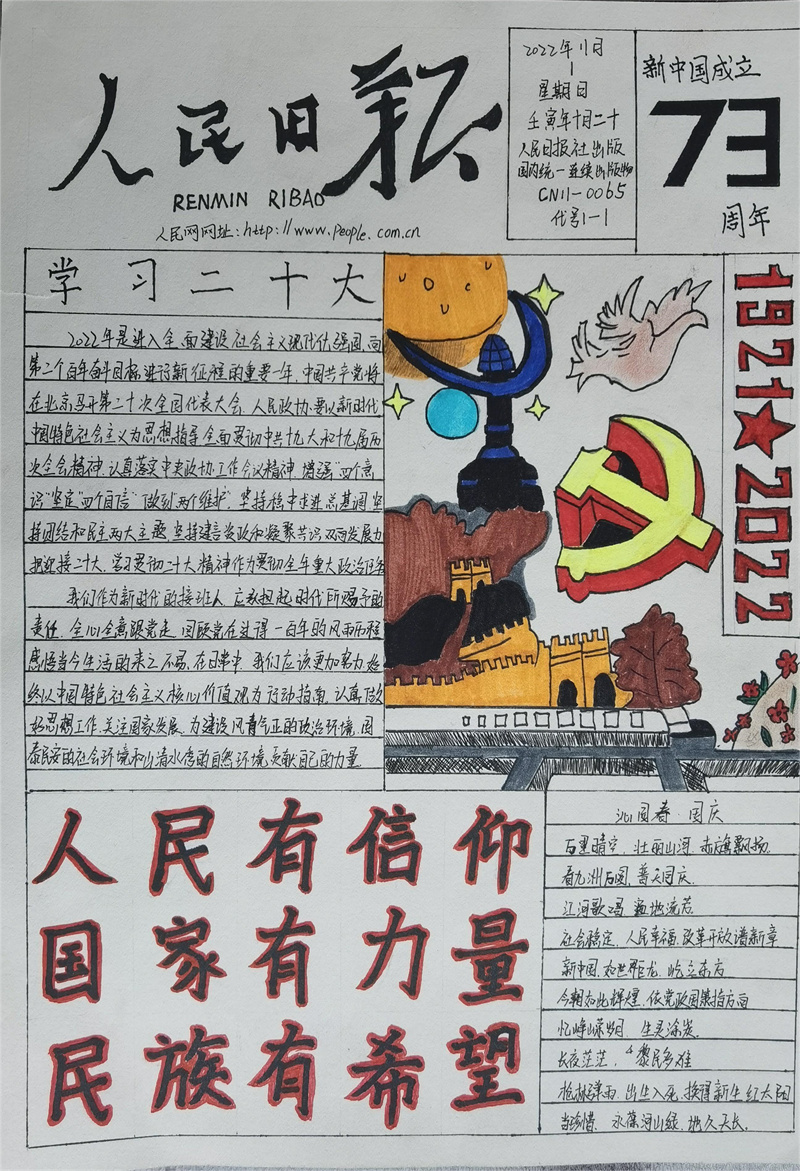 人民日报
RENMIN RIBAO
人民网网址:http://www.people.com.cn
2022年11月
星期日
壬寅年十月二十
人民日报社出版
国内统一连续出版物
CN11-0065
代号1-1
新中国成立
73
周年
学习二十大
2022年是进入全面建设社会主义现代化强国,向
第二个百年奋斗目标进行新征程的重要一年,中国共产党将
在北京召开第二十次全国代表大会,人民政协要以新时代
中国特色社会主义为思想指导,全面贯彻中共十九大和十九届历
次全会精神,认真落实中央政协工作会议精神,增强"四个意
识"坚定"四个自信"做到"两个维护",坚持稳中求进总基调,坚
持团结和民主两大主题,坚持建言资政和凝聚共识双向发展力
把迎接二十大、学习贯彻二十大精神作为贯彻全年重大政治任务
我们作为新时代的接班人,应承担起时代所赐予的
责任,全心全意跟党走,回顾党在过得一百年的风雨历程
感悟当今生活的来之不易,在日常中,我们应该更加努力,始
终以中国特色社会主义核心价值观为行动指南,认真做
好思想工作,关注国家发展,为建设风清气正的政治环境,国
泰民安的社会环境和山清水秀的自然环境,贡献自己的力量
1921★2022
人民有信仰
国家有力量
民族有希望
沁园春·国庆
万里晴空,壮丽山河,赤旗飘扬
看九洲方圆,普天同庆
江河歌唱,遍地流芳
社会稳定,人民幸福,改革开放谱新章
新中国,如世界巨龙,屹立东方
今朝如此辉煌,依党政国策指方向
忆峥嵘岁月,生灵涂炭
长夜茫茫,黎民多难
枪林弹雨,出生入死,换得新生红太阳
当珍惜,永葆河山绿,地久天长.